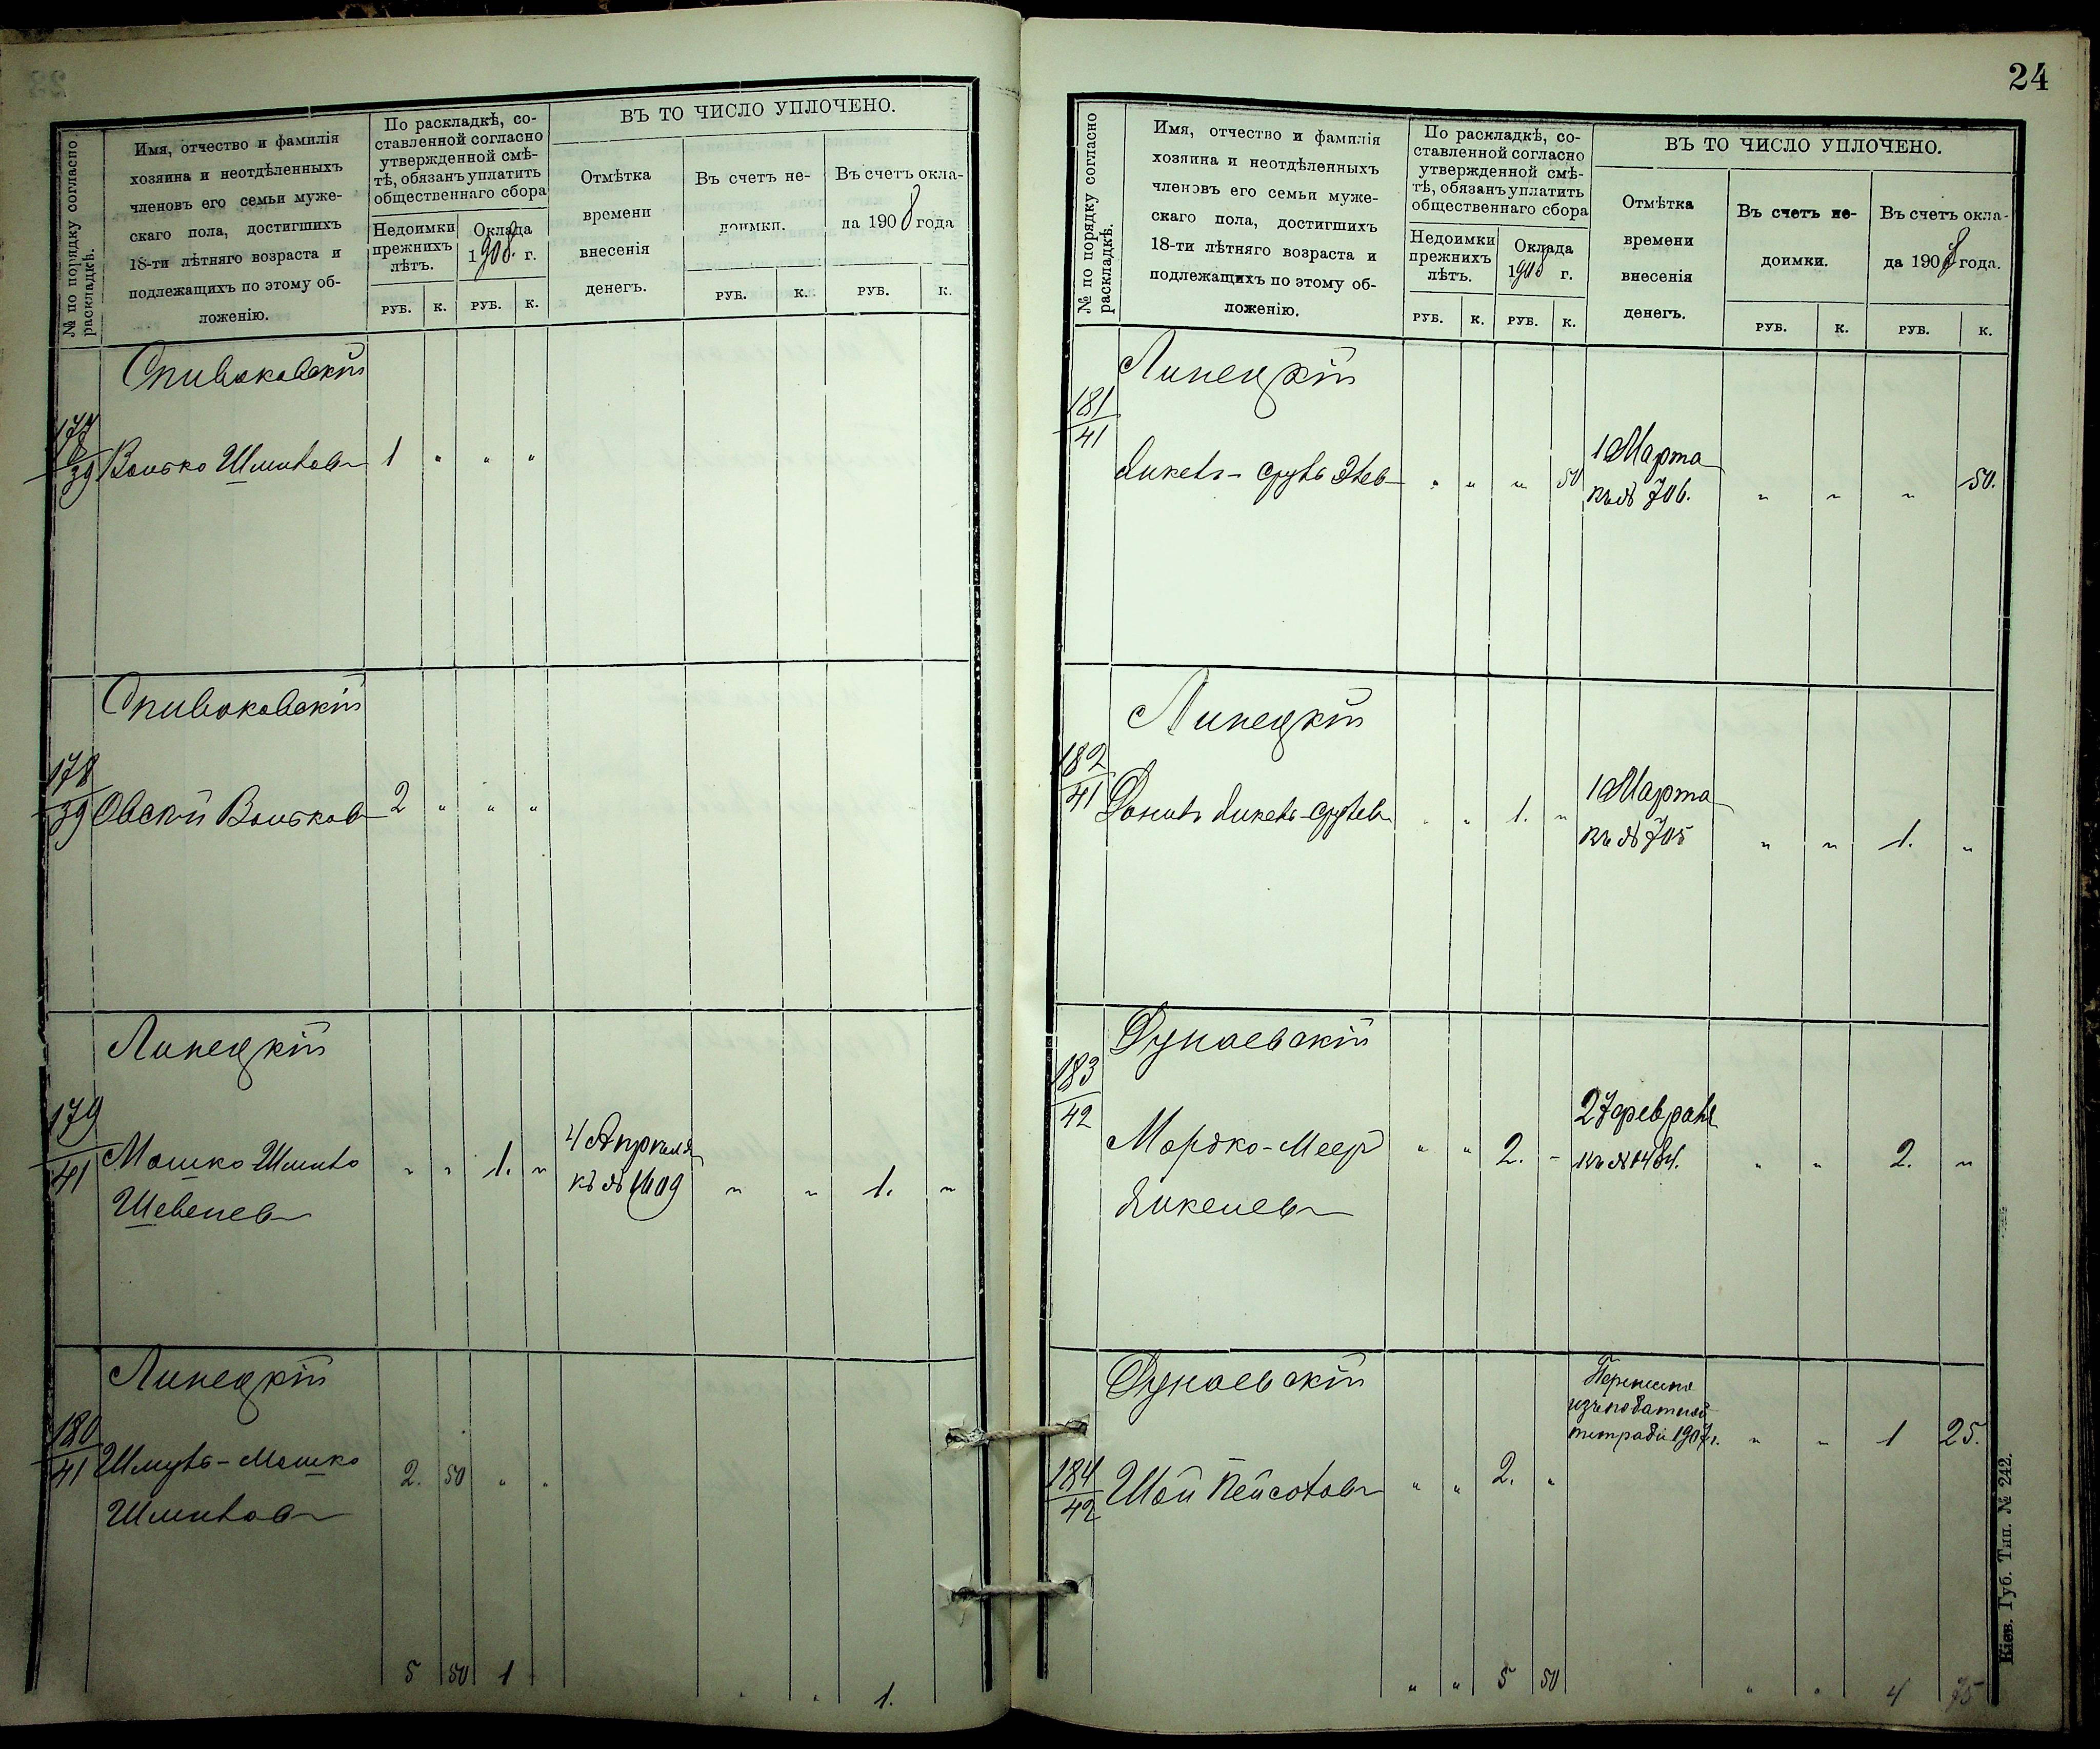 № по порядку согласно
раскладкѣ.
Имя, отчество и фамилія
хозяина и неотдѣленныхъ
членовъ его семьи муже-
скаго пола, достигшихъ
18-ти лѣтняго возраста и
подлежащихъ по этому об-
ложенію.
По раскладкѣ, со-
ставленной согласно
утвержденной смѣ-
тѣ, обязанъ уплатить
общественнаго сбора
Недоимки
прежнихъ
лѣтъ.
Оклада
1908 г.
РУБ. К. РУБ. К.
ВЪ ТО ЧИСЛО УПЛОЧЕНО.
Отмѣтка
времени
внесенія
денегъ.
Въ счетъ не-
доимки.
РУБ. К.
Въ счетъ окла-
да 1908 года
РУБ. К.
Спиваковскій
177
39
Волько Шмилев 1 " " "
Спиваковскій
178
39
Овсѣй Вольков 2 " " "
Липецкій
179
41
Мошко Шмило
Шевелев
" " 1. "
4 Апрѣля
къ № 1609
" " 1. "
Липецкій
180
41
Шмуль-Мошко
Шмилов
2. 50 " "
5 50 1
" " 1.
24
№ по порядку согласно
раскладкѣ.
Имя, отчество и фамилія
хозяина и неотдѣленныхъ
членовъ его семьи муже-
скаго пола, достигшихъ
18-ти лѣтняго возраста и
подлежащихъ по этому об-
ложенію.
По раскладкѣ, со-
ставленной согласно
утвержденной смѣ-
тѣ, обязанъ уплатить
общественнаго сбора
Недоимки
прежнихъ
лѣтъ.
Оклада
1908 г.
РУБ. К. РУБ. К.
ВЪ ТО ЧИСЛО УПЛОЧЕНО.
Отмѣтка
времени
внесенія
денегъ.
Въ счетъ не-
доимки.
РУБ. К.
Въ счетъ окла-
да 1908 года.
РУБ. К.
Липецкій
181
41
Янкель-Сруль
" " " 50
1 Марта
къ № 706.
" " " 50.
Липецкій
182
41
Данил Янкель-Срулев
" " 1. "
1 Марта
къ № 705
" " 1. "
Дунаевскій
183
42
Мордко-Меер
Янкелев
" " 2. "
27 февраля
къ №
" " 2. "
Дунаевскій
184
42
Шой Пейсахов
" " 2. "
изъ податной
тетради 1907 г.
" " 1 25.
" " 5 50
" " 4 75
Кіев. Губ. Тип. № 242.